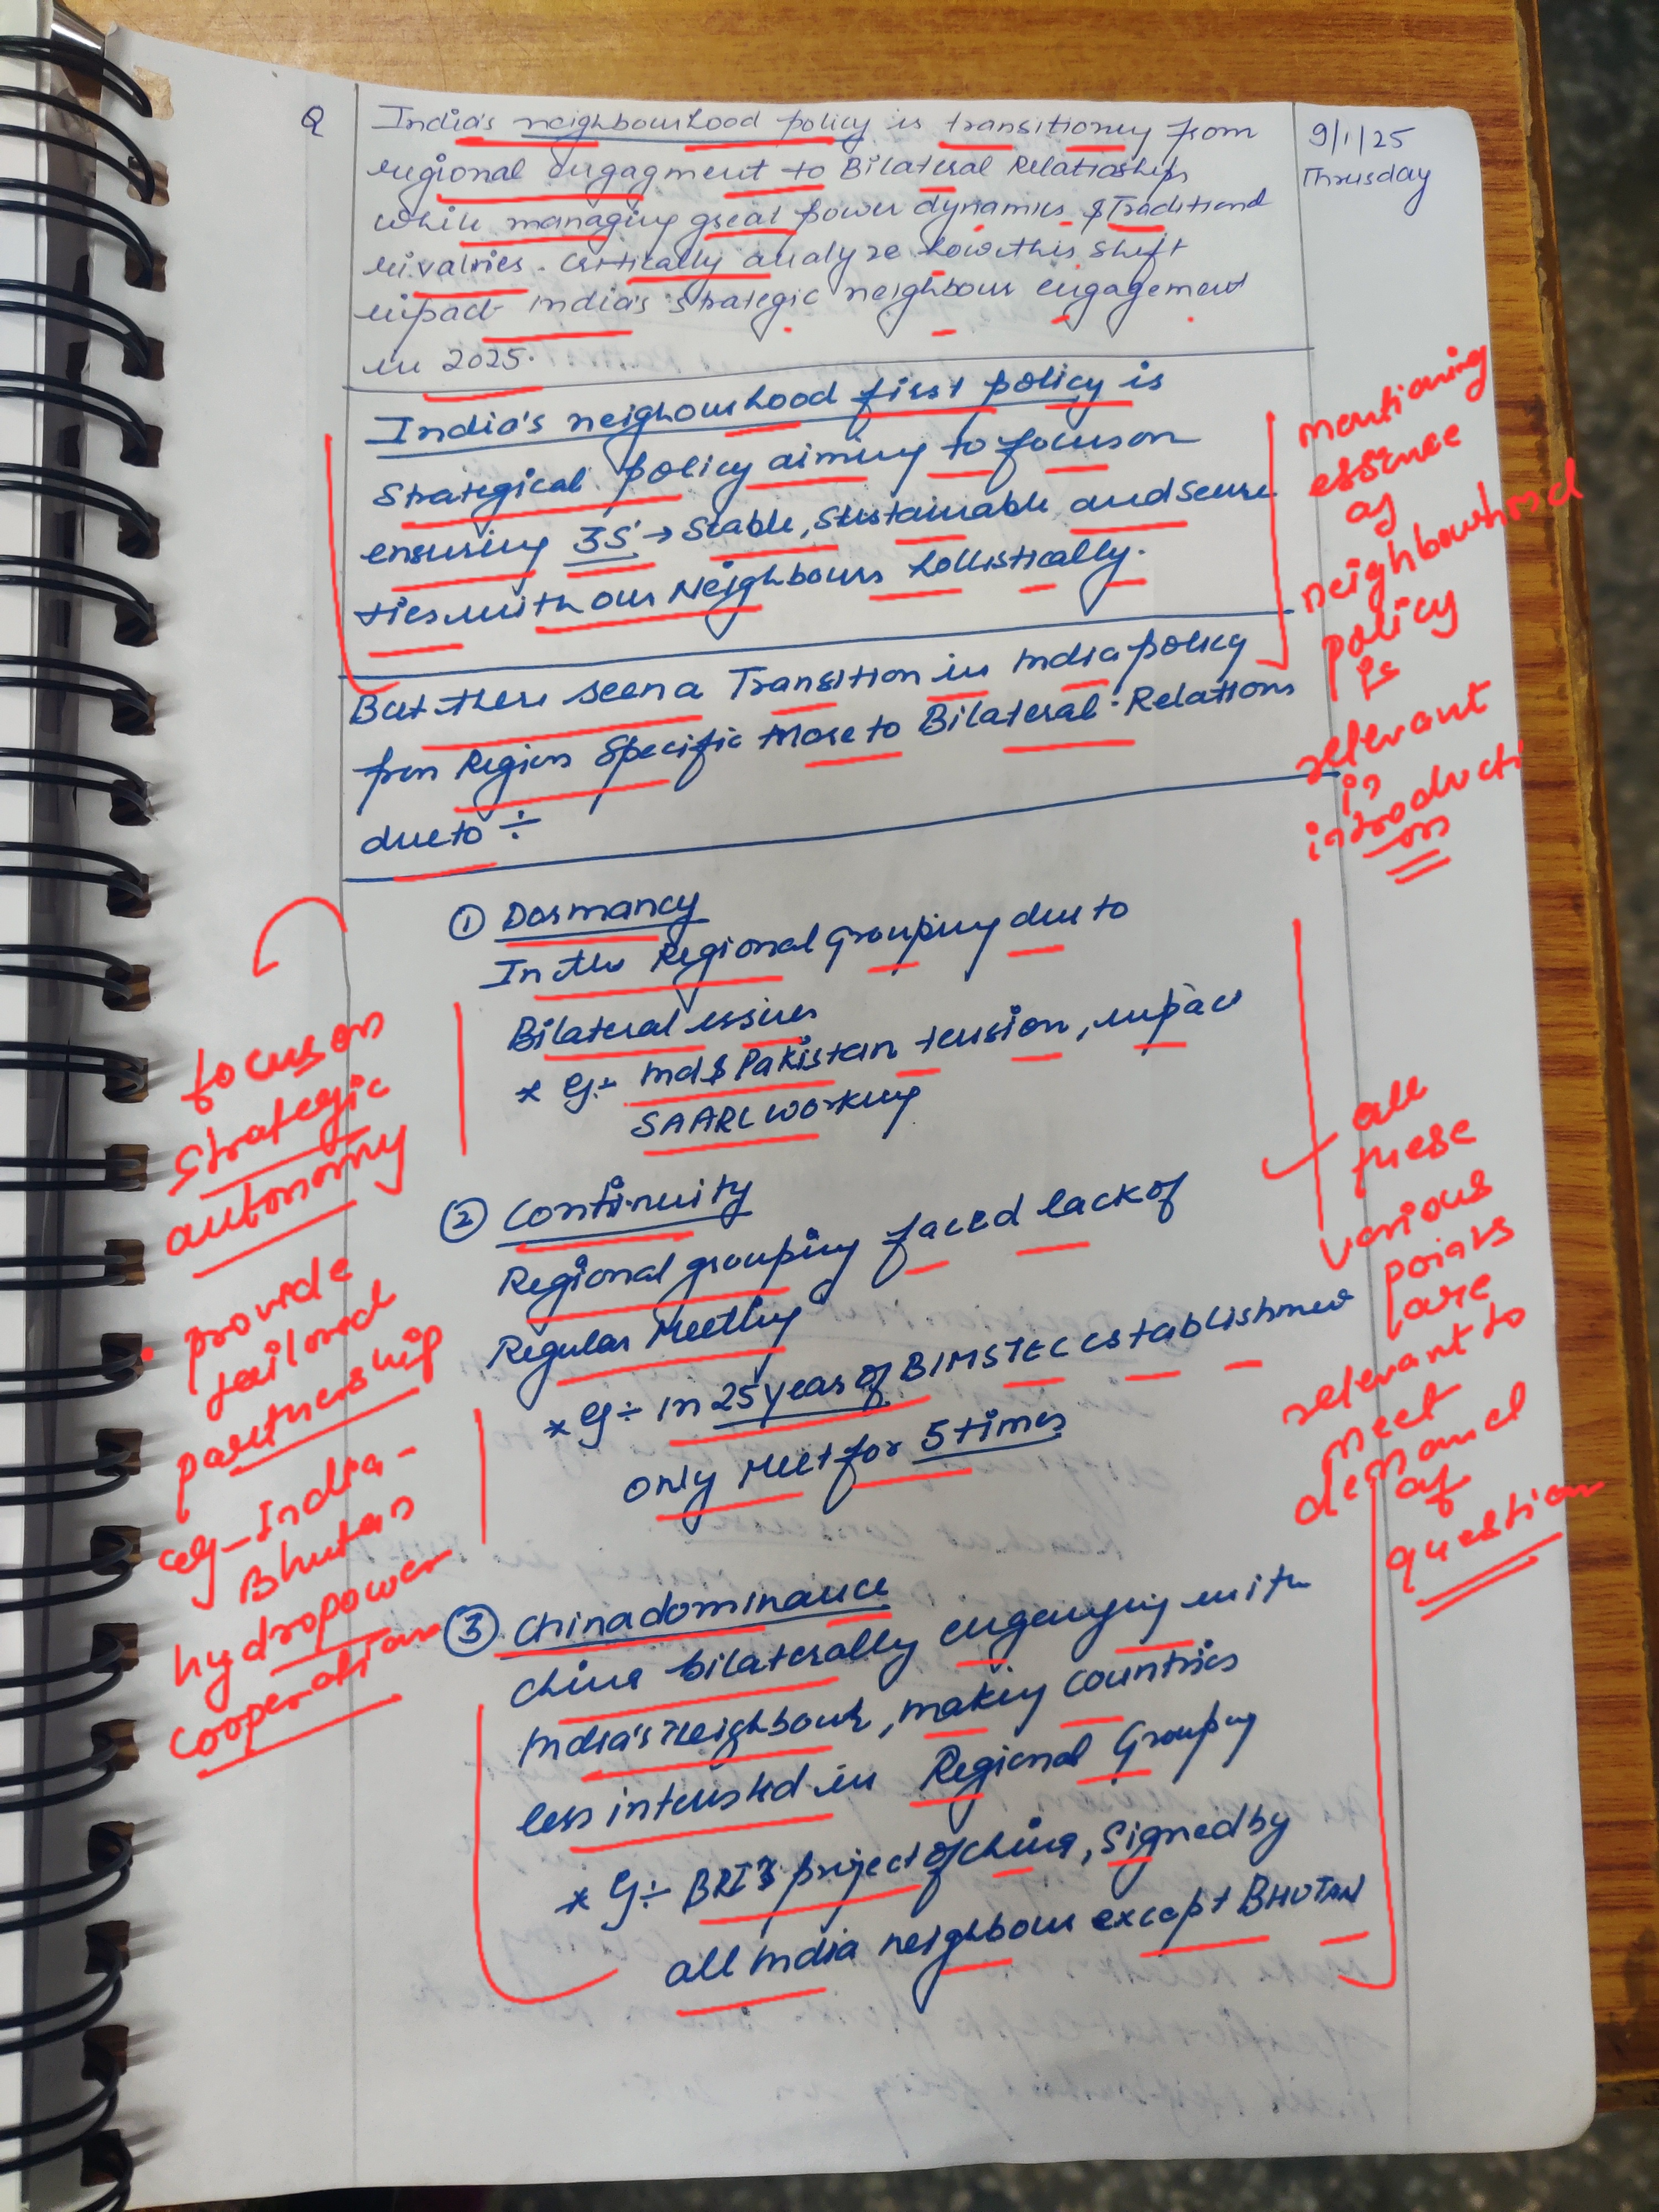 Q
India's neighbourhood policy is transitioney from
regional engagment to Bilateral Relatioships
while managing great power dynamics & Traditional
rivalries. Critically analyze how this shift
impact India's strategic neighbour engagement
in 2025.
9/1/25
Thrusday
India's neighourhood first policy is
Strategical policy aiming to focus on
ensuring 3S' → Stable, Sustainable and secure
ties with our Neighbours hollistically.
But there seen a Transition in India policy
from Region Specific More to Bilateral Relations
due to ÷
① Dormancy
In the Regional grouping due to
Bilateral issues
* Eg:- Ind & Pakistan tension, impact
SAARC working
② Continuity
Regional grouping faced lack of
Regular Meeting
* Eg ÷ in 25 years of BIMSTEC establishment
only Meet for 5 times
③ China dominance
China bilaterally engaging with
India's Neighbour, making countries
less intersted in Regional Grouping
* Eg ÷ BRI project of China, Signed by
all India neighbour except BHUTAN
mentioning
essence
of
neighbourhood
policy
is
relevant
in
introducti
on
focus on
strategic
autonomy
• provide
tailored
partnership
eg - India -
Bhutan
hydropower
cooperation
all
these
various
points
are
relevant to
meet
demand
of
question